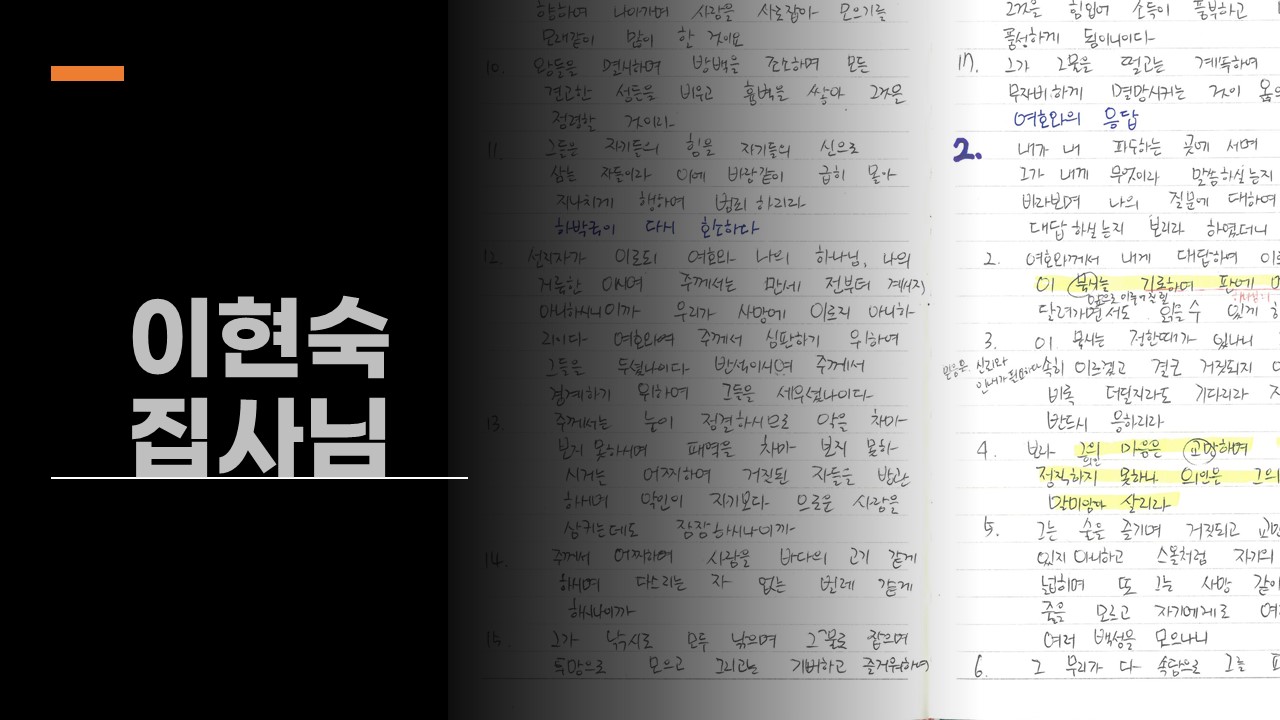 이현숙
집사님
향하여 나아가며 사람을 사로잡아 모으기를
모래같이 많이 할 것이요
10. 왕들을 멸시하며 방백을 조소하며 모든
견고한 성들을 비웃고 흉벽을 쌓아 그것을
점령할 것이라
11. 그들은 자기들의 힘을 자기들의 신으로
삼는 자들이라 이에 바람같이 급히 몰아
지나치게 행하여 범죄하리라
하박국이 다시 호소하다
12. 선지자가 이르되 여호와 나의 하나님, 나의
거룩한 이시여 주께서는 만세 전부터 계시지
아니하시니이까 우리가 사망에 이르지 아니하
리이다 여호와여 주께서 심판하기 위하여
그들을 두셨나이다 반석이시여 주께서
경계하기 위하여 그들을 세우셨나이다
13. 주께서는 눈이 정결하시므로 악을 차마
보지 못하시며 패역을 차마 보지 못하
시거늘 어찌하여 거짓된 자들을 방관
하시며 악인이 자기보다 의로운 사람을
삼키는데도 잠잠하시나이까
14. 주께서 어찌하여 사람을 바다의 고기 같게
하시며 다스리는 자 없는 벌레 같게
하시나이까
15. 그가 낚시로 모두 낚으며 그물로 잡으며
투망으로 모으고 그리고는 기뻐하고 즐거워하여
그것을 힘입어 소득이 풍부하고
풍성하게 됨이니이다
17. 그가 그물을 떨고는 계속하여
무자비하게 멸망시키는 것이 옳으
여호와의 응답
2. 내가 내 파수하는 곳에 서며
그가 내게 무엇이라 말씀하실는지
바라보며 나의 질문에 대하여
대답하실는지 보리라 하였더니
2. 여호와께서 내게 대답하여 이르
이 묵시를 기록하여 판에
달려가면서도 읽을 수 있게 하
3. 이 묵시는 정한때가 있나니
속히 이르겠고 결코 거짓되지
믿음은 신리와
인내가 필요하다
비록 더딜지라도 기다리라
반드시 응하리라
4. 보라 그의 마음은 교만하며
정직하지 못하나 의인은 그의
말미암아 살리라
5. 그는 술을 즐기며 거짓되고 교만
있지 아니하고 스올처럼 자기의
넓히며 또 그는 사망 같아
족을 모르고 자기에게로 여
여러 백성을 모으나니
6. 그 무리가 다 속담으로 그를